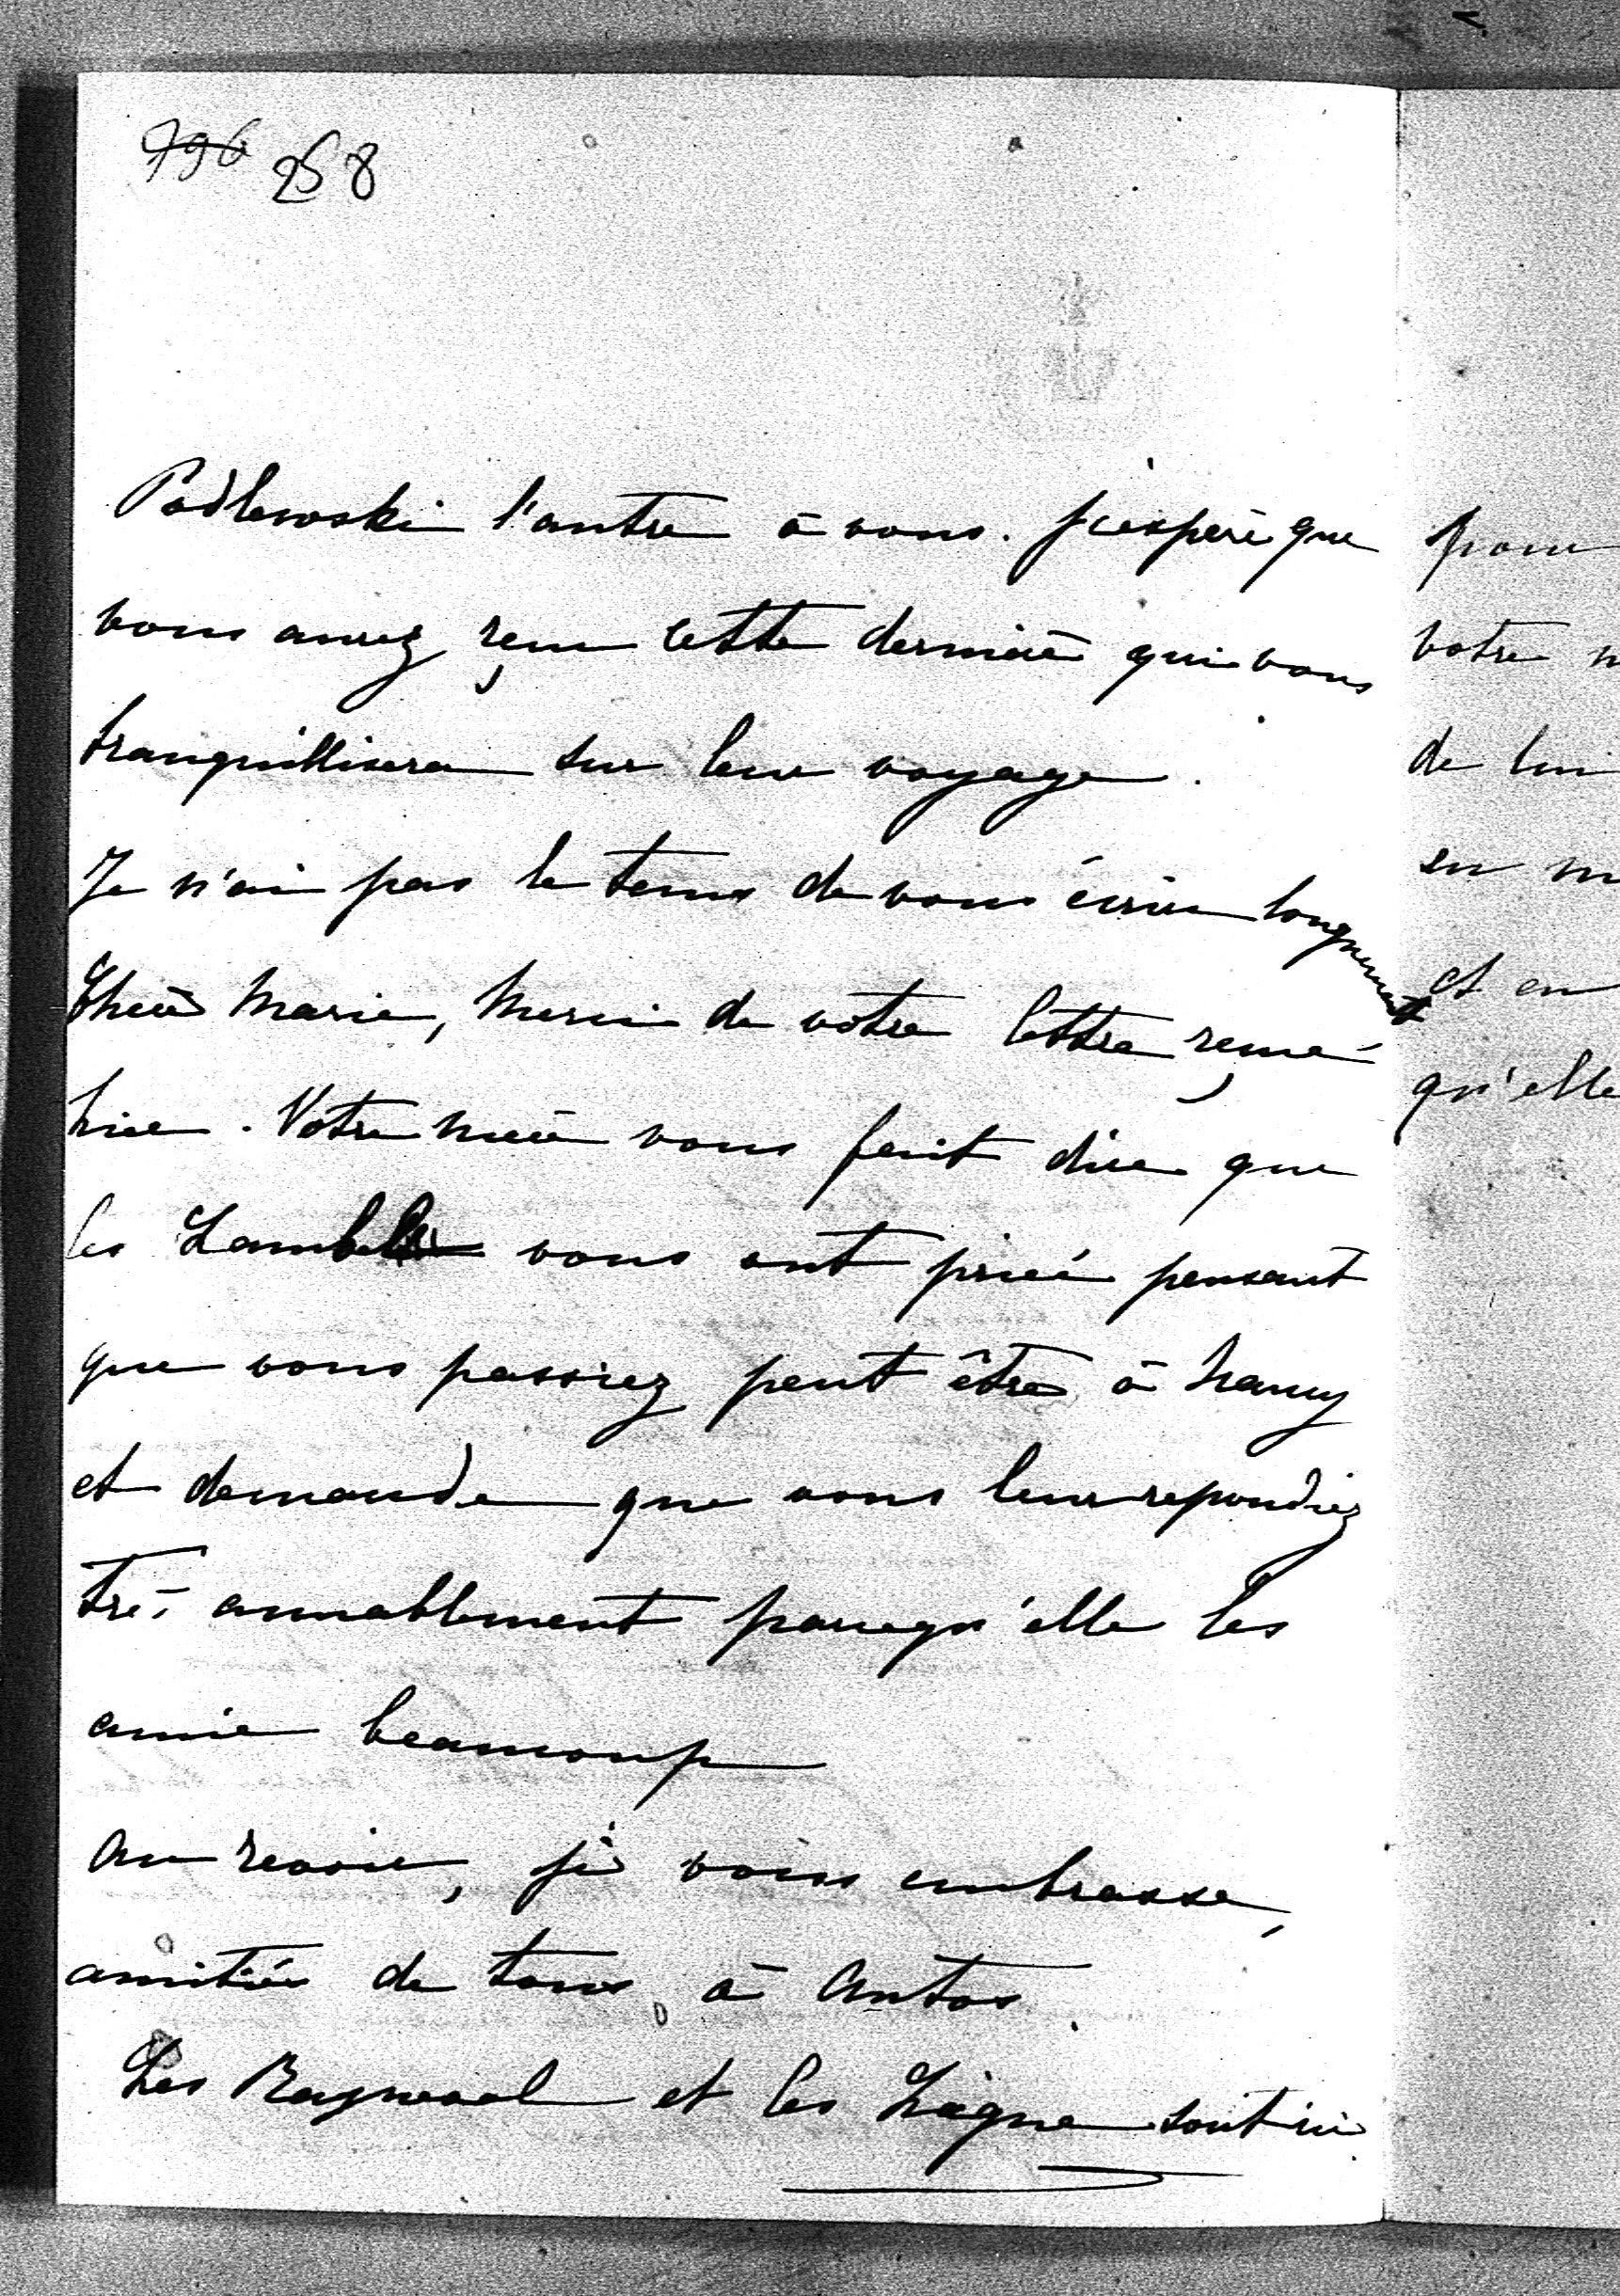 796 258
Podlewski l'autre à vous. j'espère que
vous aurez reçu cette dernière qui vous
tranquillisera sur leur voyage.
Je n'ai pas le tems de vous écrire longuement
Chère Marie, Merci de votre lettre reçue
hier. Votre mère vous fait dire que
les vous ont priée pensant
que vous passiez peut être à Nancy
et demande que vous leur repondiez
très aimablement parcequ'elle les
aime beaucoup
au revoir, je vous embrasse,
amitiés de tous à Antos.
Les et les Ligne sont ici
pour
votre
de lui
en
et en
qu'elle